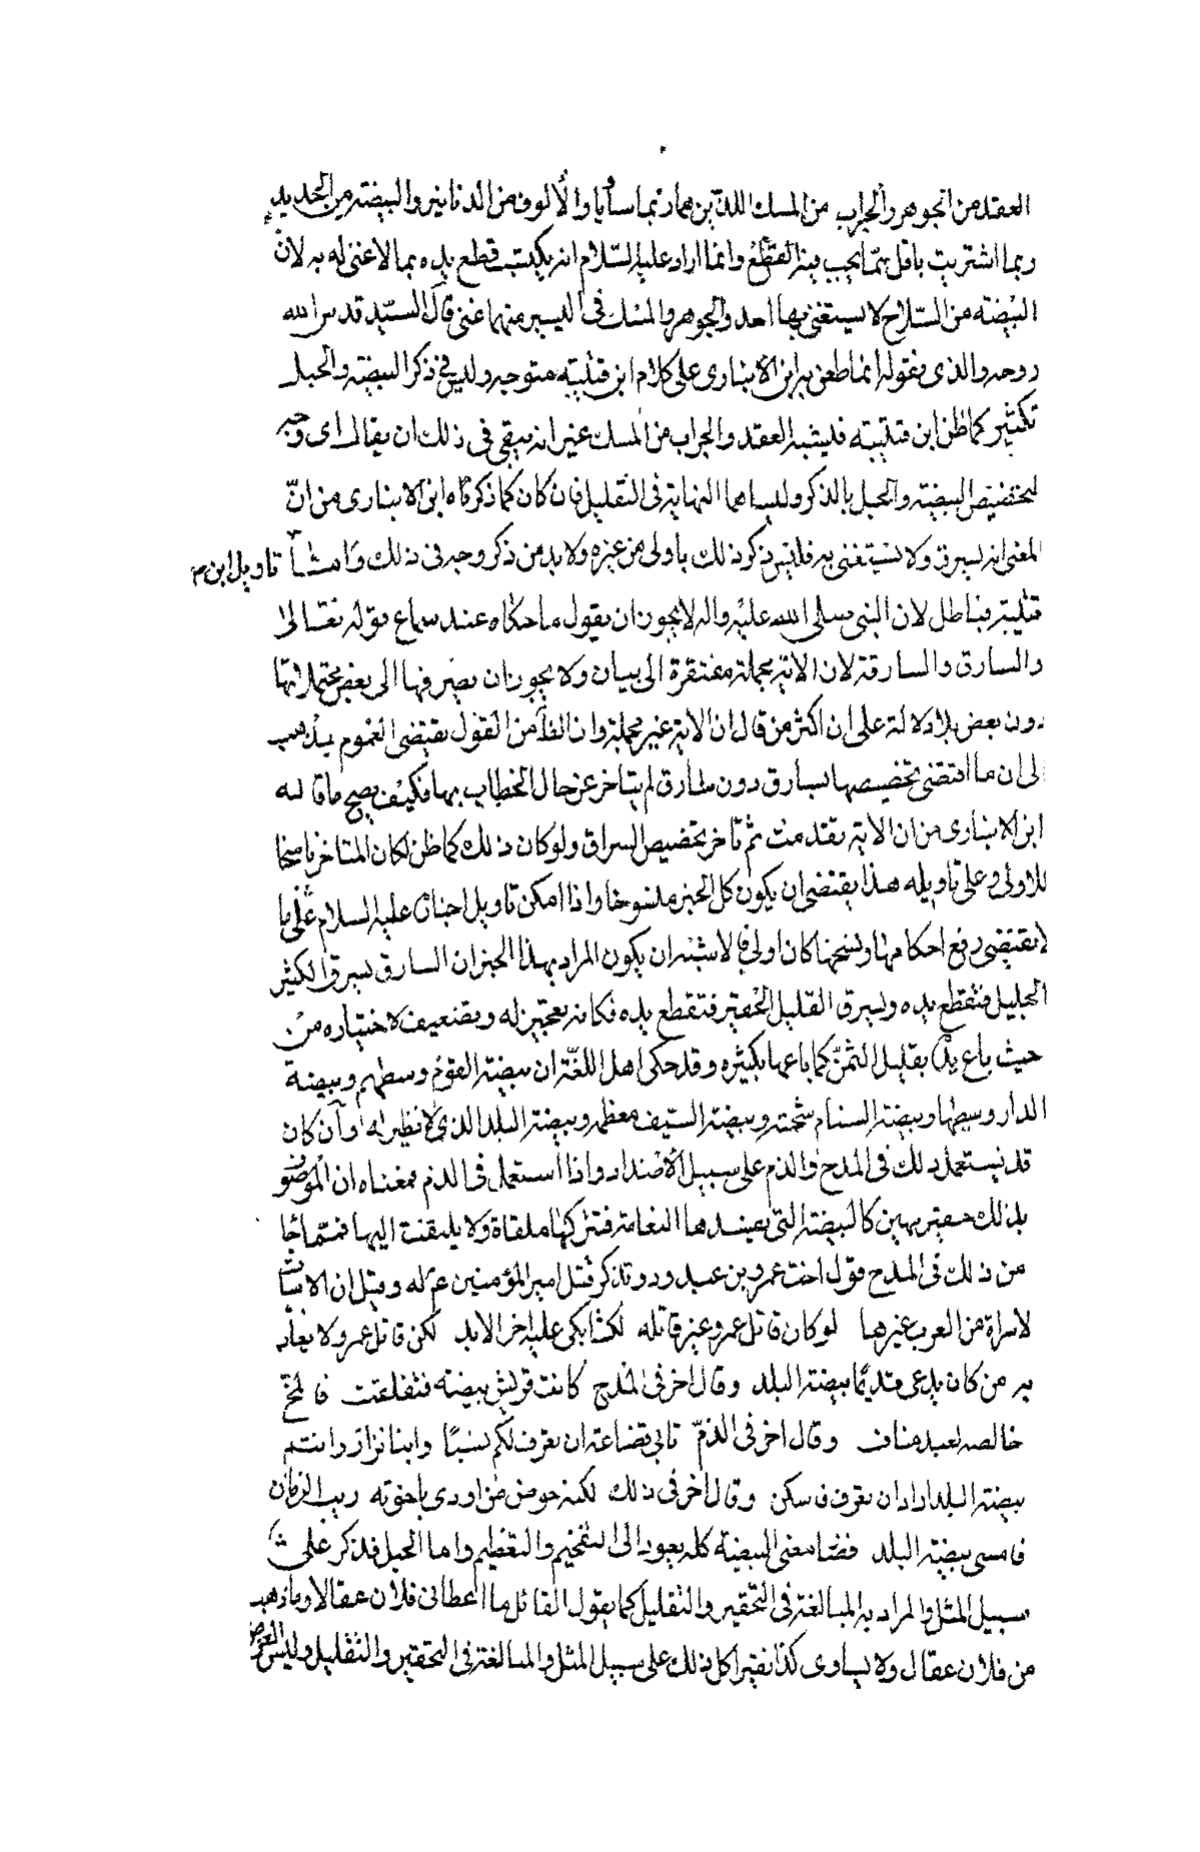 العقد من الجوهر والجراب من المسك اللذين هما ربما ساويا الألوف من الدنانير والبيضة من الحديد
ربما اشتريت باقل مما يجب فيه القطع وانما اراد عليه السلام انه يكتسب قطع يده بما لا غنى له به لان
البيضة من السلاح لا يستغنى بها احد والجوهر والمسك فى اليسير منهما غنى قال السيد قدس الله
روحه والذى نقوله انما طعن به ابن الانبارى على كلام ابن قتيبة متوجه وليس فى ذكر البيضة والحبل
تكثير كما ظن ابن قتيبة فيشبه العقد والجراب من المسك غير انه يبقى فى ذلك ان يقال اى وجه
لتخصيص البيضة والحبل بالذكر وليسا هما النهاية فى التقليل فان كان كما ذكره ابن الانبارى من انّ
المعنى انه يسرق ولا يستغنى به فليس ذكر ذلك باولى من غيره ولا بد من ذكر وجه فى ذلك وامّا تاويل ابن
قتيبة فباطل لان النبى صلى الله عليه واله لا يجوز ان يقول ما حكاه عند سماع قوله تعالى
والسارق والسارقة لان الاية مجملة مفتقرة الى بيان ولا يجوز ان يصرفها الى بعض محتملاتها
دون بعض بلا دلالة على ان اكثر من قال ان الاية غير مجملة وان الظاهر من القول يقتضى العموم يذهب
الى ان ما اقتضى تخصيصها بسارق دون سارق لم يتاخر عن حال الخطاب بها فكيف يصح ما قاله
ابن الانبارى من ان الاية تقدمت ثم تاخر تخصيص السراق ولو كان ذلك كما ظن لكان المتاخر ناسخا
للاولى وعلى تاويله هذا يقتضى ان يكون كل الخبر منسوخا واذا امكن تاويل اخباره عليه السلام على ما
لا يقتضى رفع احكامها ونسخها كان اولى فالاشبه ان يكون المراد بهذا الخبر ان السارق يسرق الكثير
الجليل فتقطع يده ويسرق القليل الحقير فتقطع يده فكانه تعجيز له وتضعيف لاختياره من
حيث باع يده بقليل الثمن كما باعها بكثيره وقد حكى اهل اللغة ان بيضة القوم وسطهم وبيضة
الدار وسطها وبيضة السنام شحمته وبيضة السيف معظمه وبيضة البلد الذى لا نظير له وان كان
قد يستعمل ذلك فى المدح والذم على سبيل الاضداد واذا استعمل فى الذم فمعناه ان الموصوف
بذلك حقير مهين كالبيضة التى تفسدها النعامة فتتركها ملقاة ولا يلتفت اليها فممّا جا
من ذلك فى المدح قول اخت عمرو بن عبد ود وتذكر قتل امير المؤمنين ع له وقيل ان الابيات
لامراة من العرب غيرها لو كان قاتل عمرو غير قاتله لكنت ابكى عليه اخر الابد لكن قاتل عمرو لا يعاب
به من كان يدعى قديما بيضة البلد وقال اخر فى المدح كانت قريش بيضة فتفلقت فالمح
خالصه لعبد مناف وقال اخر فى الذمّ تابى قضاعة ان تعرف لكم نسبًا وابنا نزار وانتم
بيضة البلد اراد ان تعرف فاسكن وقال اخر فى ذلك لكنه حوض من اودى باخوته ريب الزمان
فامسى بيضة البلد فصا معنى البيضة كله يعود الى التفخيم والتعظيم واما الحبل فذكر على
سبيل المثل والمراد به المبالغة فى التحقير والتقليل كما يقول القائل ما اعطانى فلان عقالا وما ذهب
من فلان عقال ولا يساوى كذا نقيرا كل ذلك على سبيل المثل والمبالغة فى التحقير والتقليل وليس الغرض